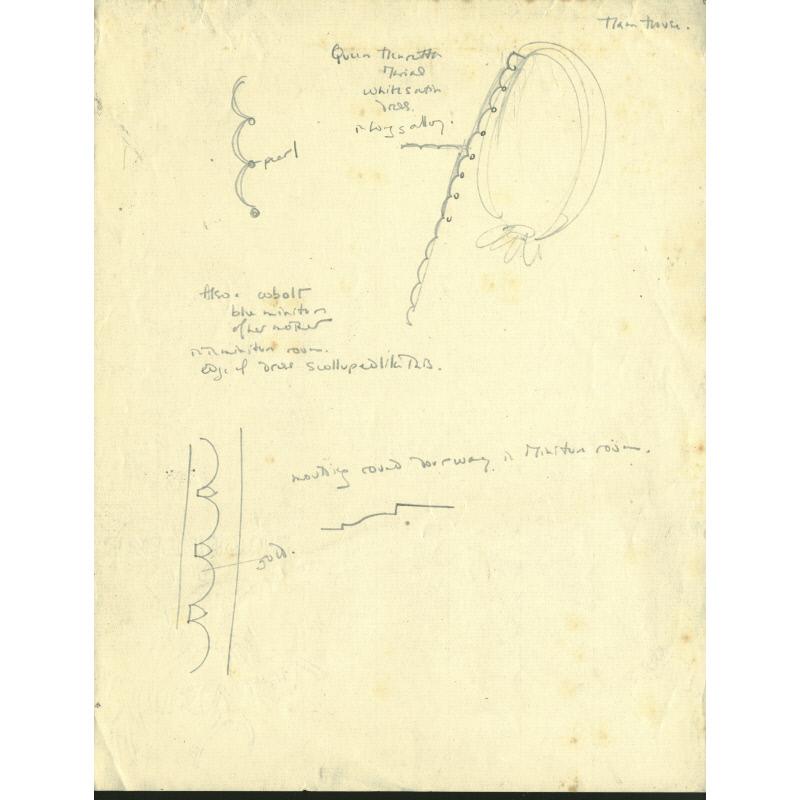 Ham House.
Queen Henrietta
Maria's
white satin
dress.
in long gallery.
pearl
Also. cobolt
blue miniture
of her mother
in miniture room.
edge of dress scolloped like this.
moulding round doorway in Miniture room.
gold.